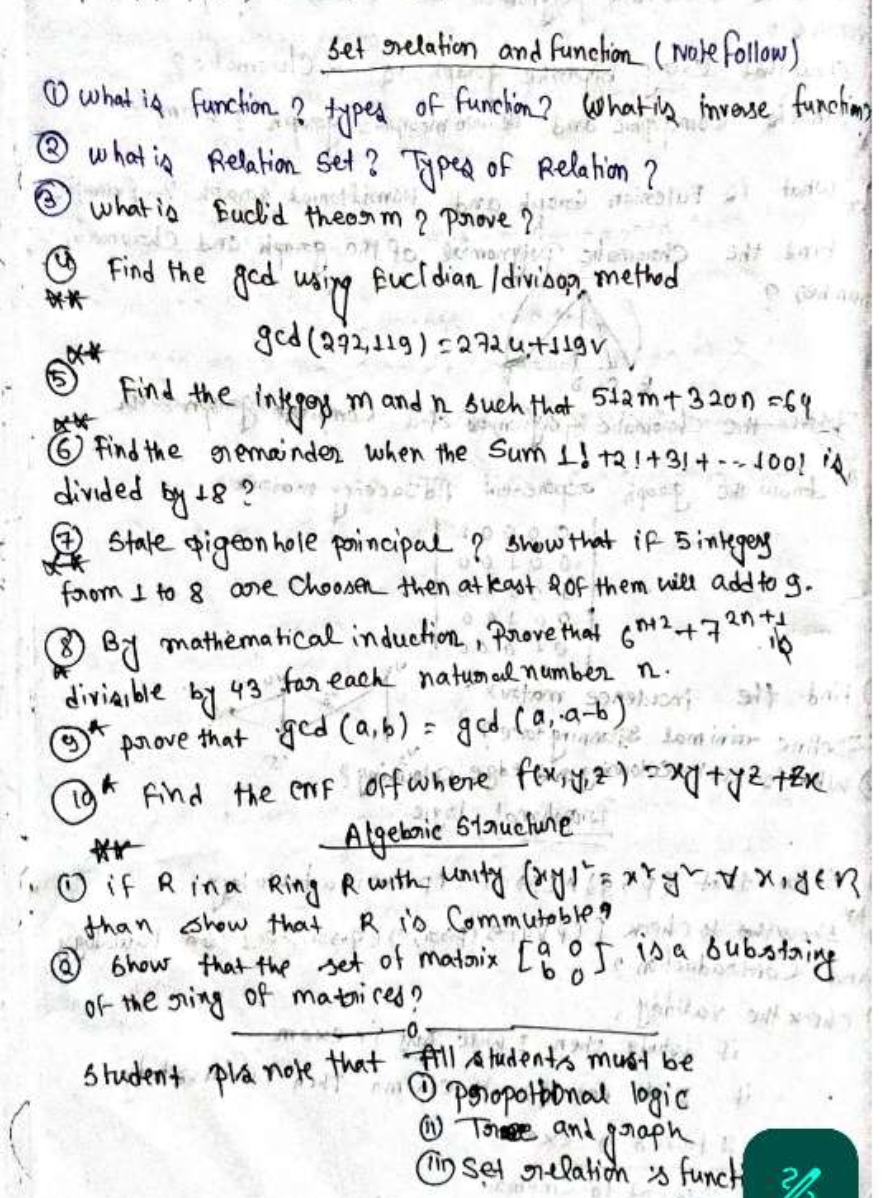 Set relation and function (Note follow)
① what is function ? types of function? What is inverse function?
② what is Relation Set ? Types of Relation ?
③ what is Euclid theorm ? prove ?
④ Find the gcd using Euclidian / divisor method
**
gcd (272,119) = 272u+119v
**
⑤ Find the integers m and n such that 512m + 320n = 64
**
⑥ Find the remainder when the Sum 1! +2!+3!+ --- 100! is
divided by 18 ?
⑦ State pigeon hole principal ? show that if 5 integers
**
from 1 to 8 are Choosen then atleast 2 of them will add to 9.
⑧ By mathematical induction, Prove that 6^{n+2} + 7^{2n+1} is
*
divisible by 43 for each natural number n.
⑨* prove that gcd (a,b) = gcd (a, a-b)
⑩* Find the CNF off where f(x,y,z) = xy+yz+zx
Algebric Structure
**
① if R in a Ring R with unity (xy)² = x² y² ∀ x, y ∈ R
than show that R is Commutable?
② Show that the set of matrix [a 0 b 0] is a substring
of the ring of matrices?
0
Student pls note that All students must be
(i) Propotional logic
(ii) Tree and graph
(iii) Set relation is funct